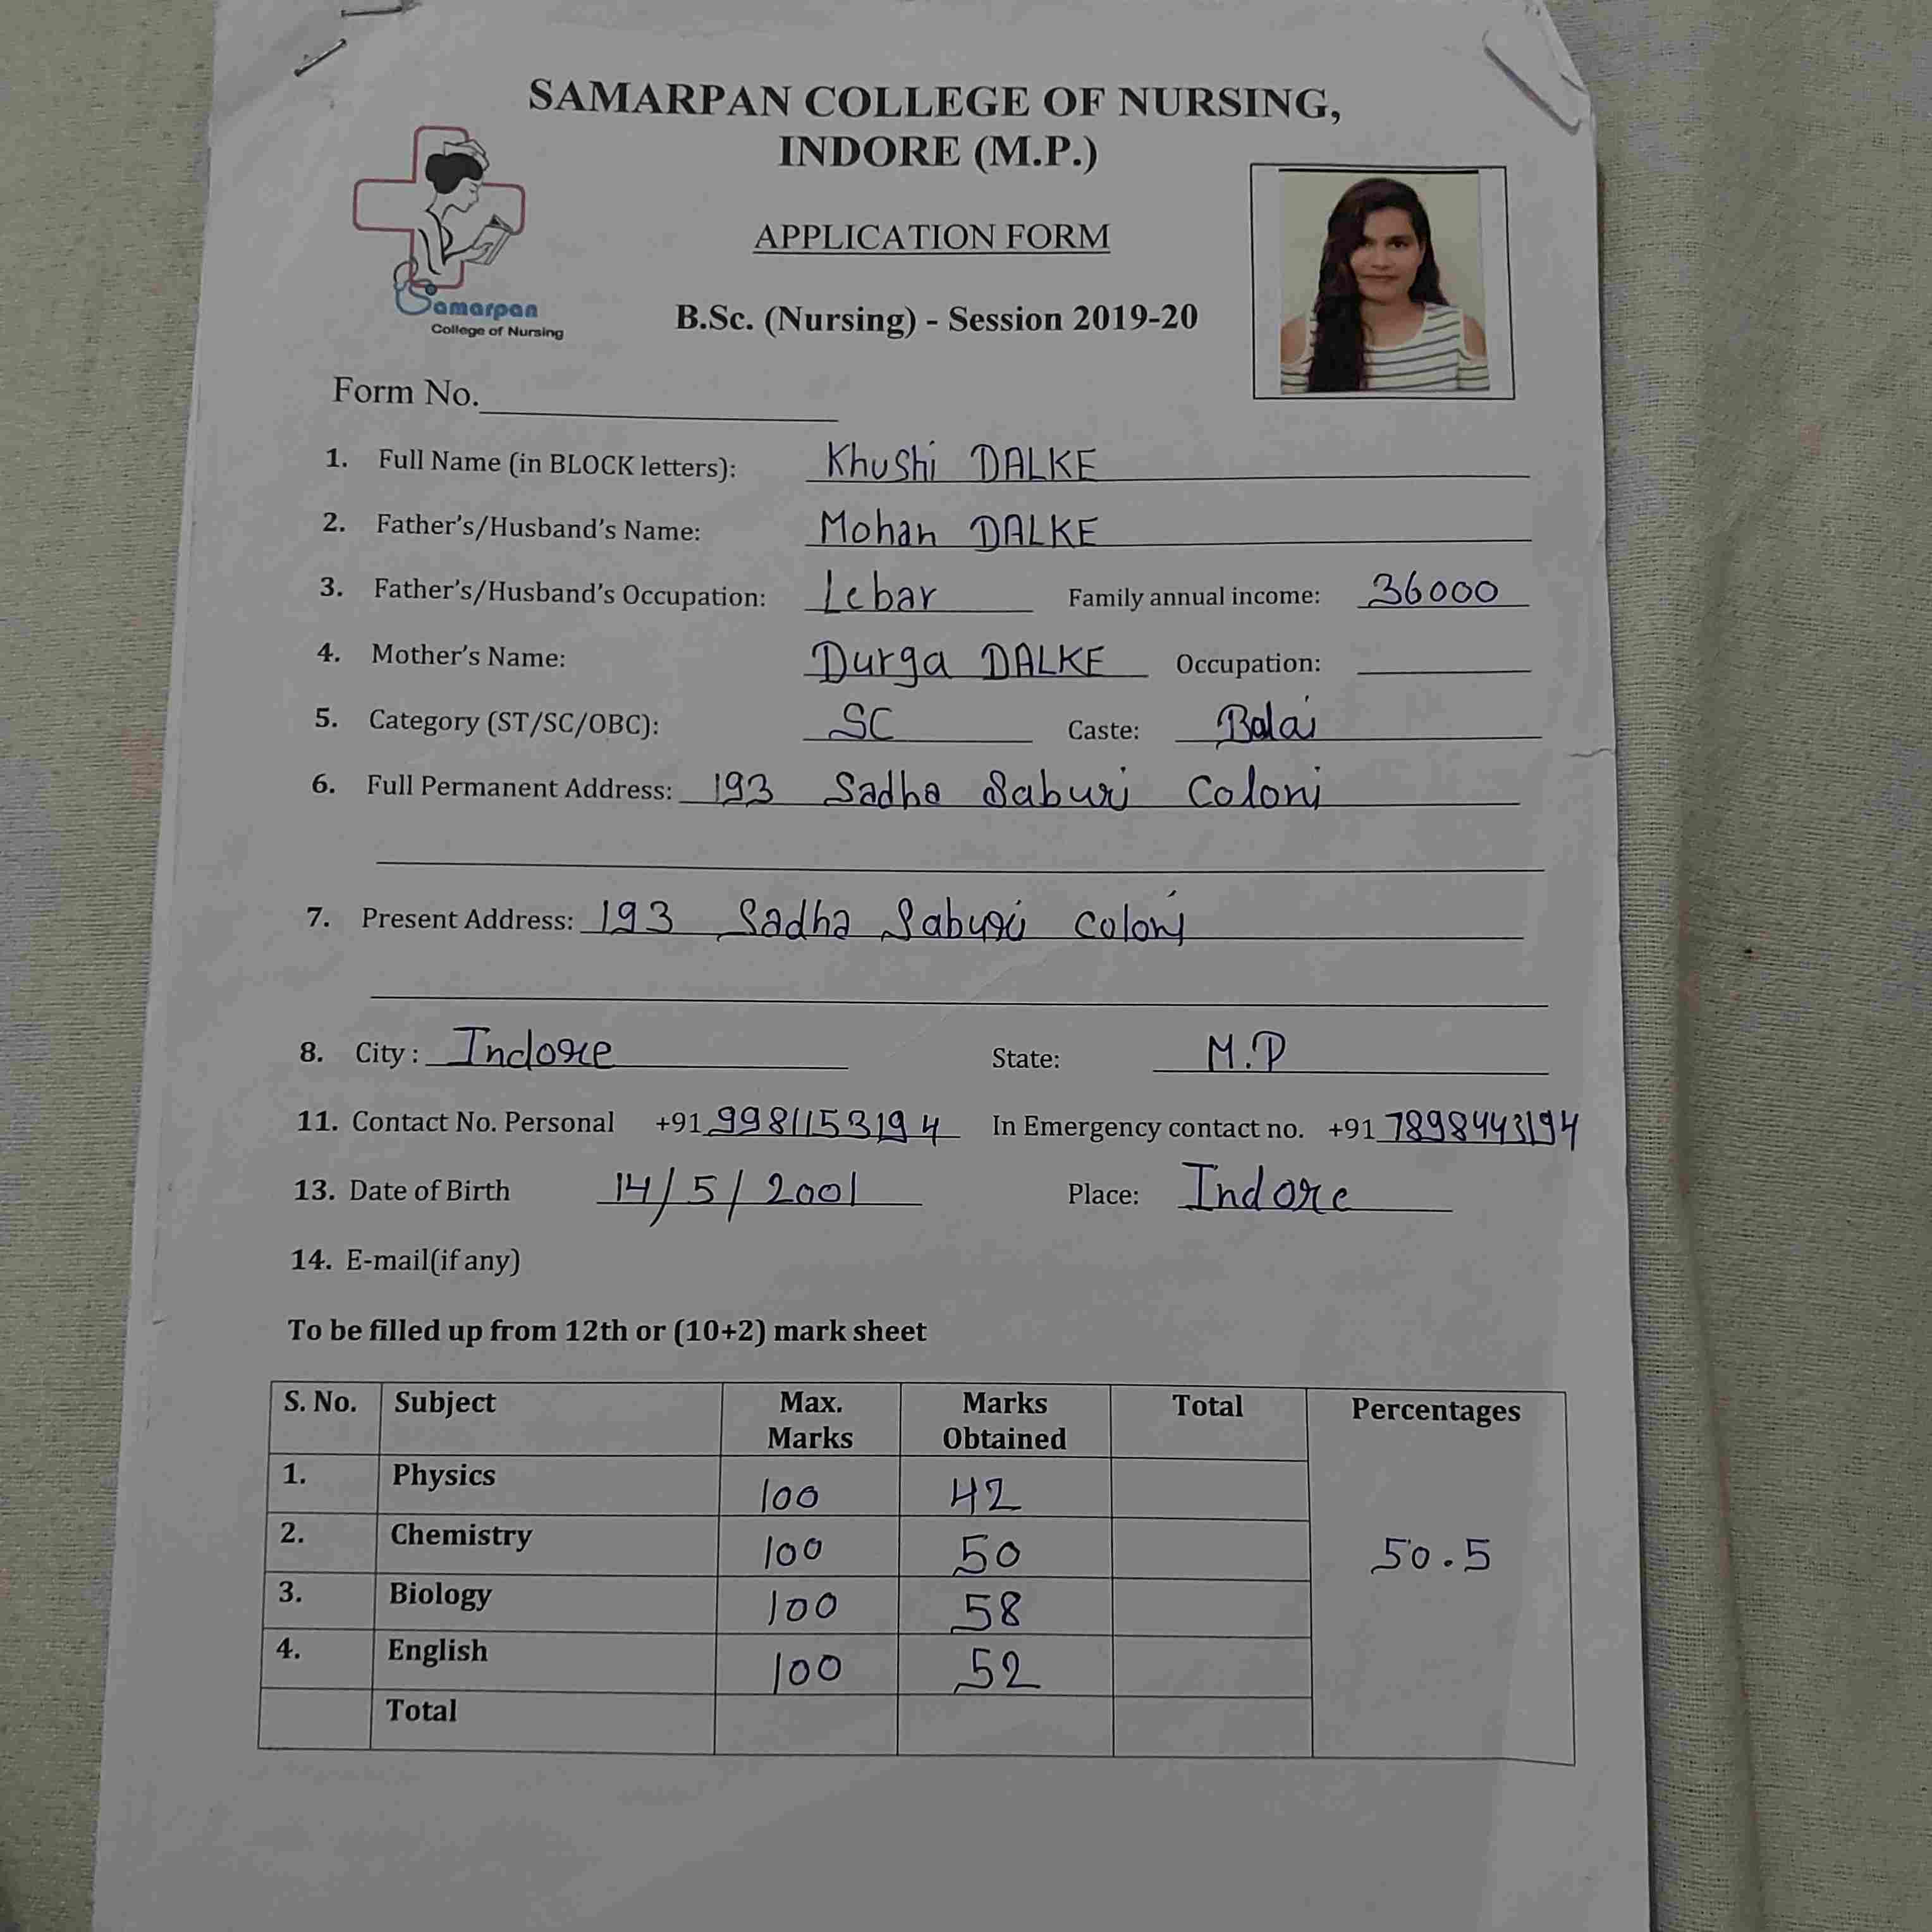 SAMARPAN COLLEGE OF NURSING,
INDORE (M.P.)
APPLICATION FORM
Samarpan
College of Nursing
B.Sc. (Nursing) - Session 2019-20
Form No.
1. Full Name (in BLOCK letters): Khushi DALKE
2. Father's/Husband's Name: Mohan DALKE
3. Father's/Husband's Occupation: Lebar Family annual income: 36000
4. Mother's Name: Durga DALKE Occupation:
5. Category (ST/SC/OBC): SC Caste: Balai
6. Full Permanent Address: 193 Sadha Saburi Coloni
7. Present Address: 193 Sadha Saburi coloni
8. City : Indore State: M.P
11. Contact No. Personal +91 9981153194 In Emergency contact no. +91 7898443194
13. Date of Birth 14/5/2001 Place: Indore
14. E-mail(if any)
To be filled up from 12th or (10+2) mark sheet
S. No. Subject Max. Marks Marks Obtained Total Percentages
1. Physics 100 42
2. Chemistry 100 50 50.5
3. Biology 100 58
4. English 100 52
Total